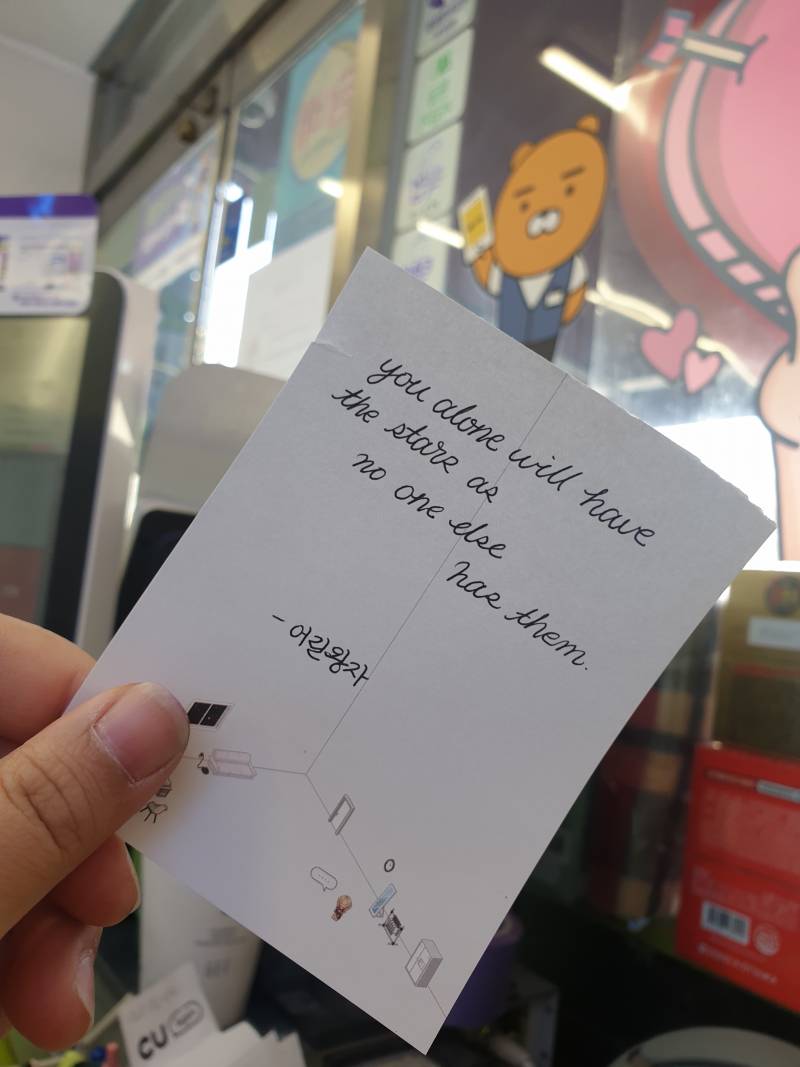 you alone will have
the stars as
no one else
has them.
- 어린왕자
CU